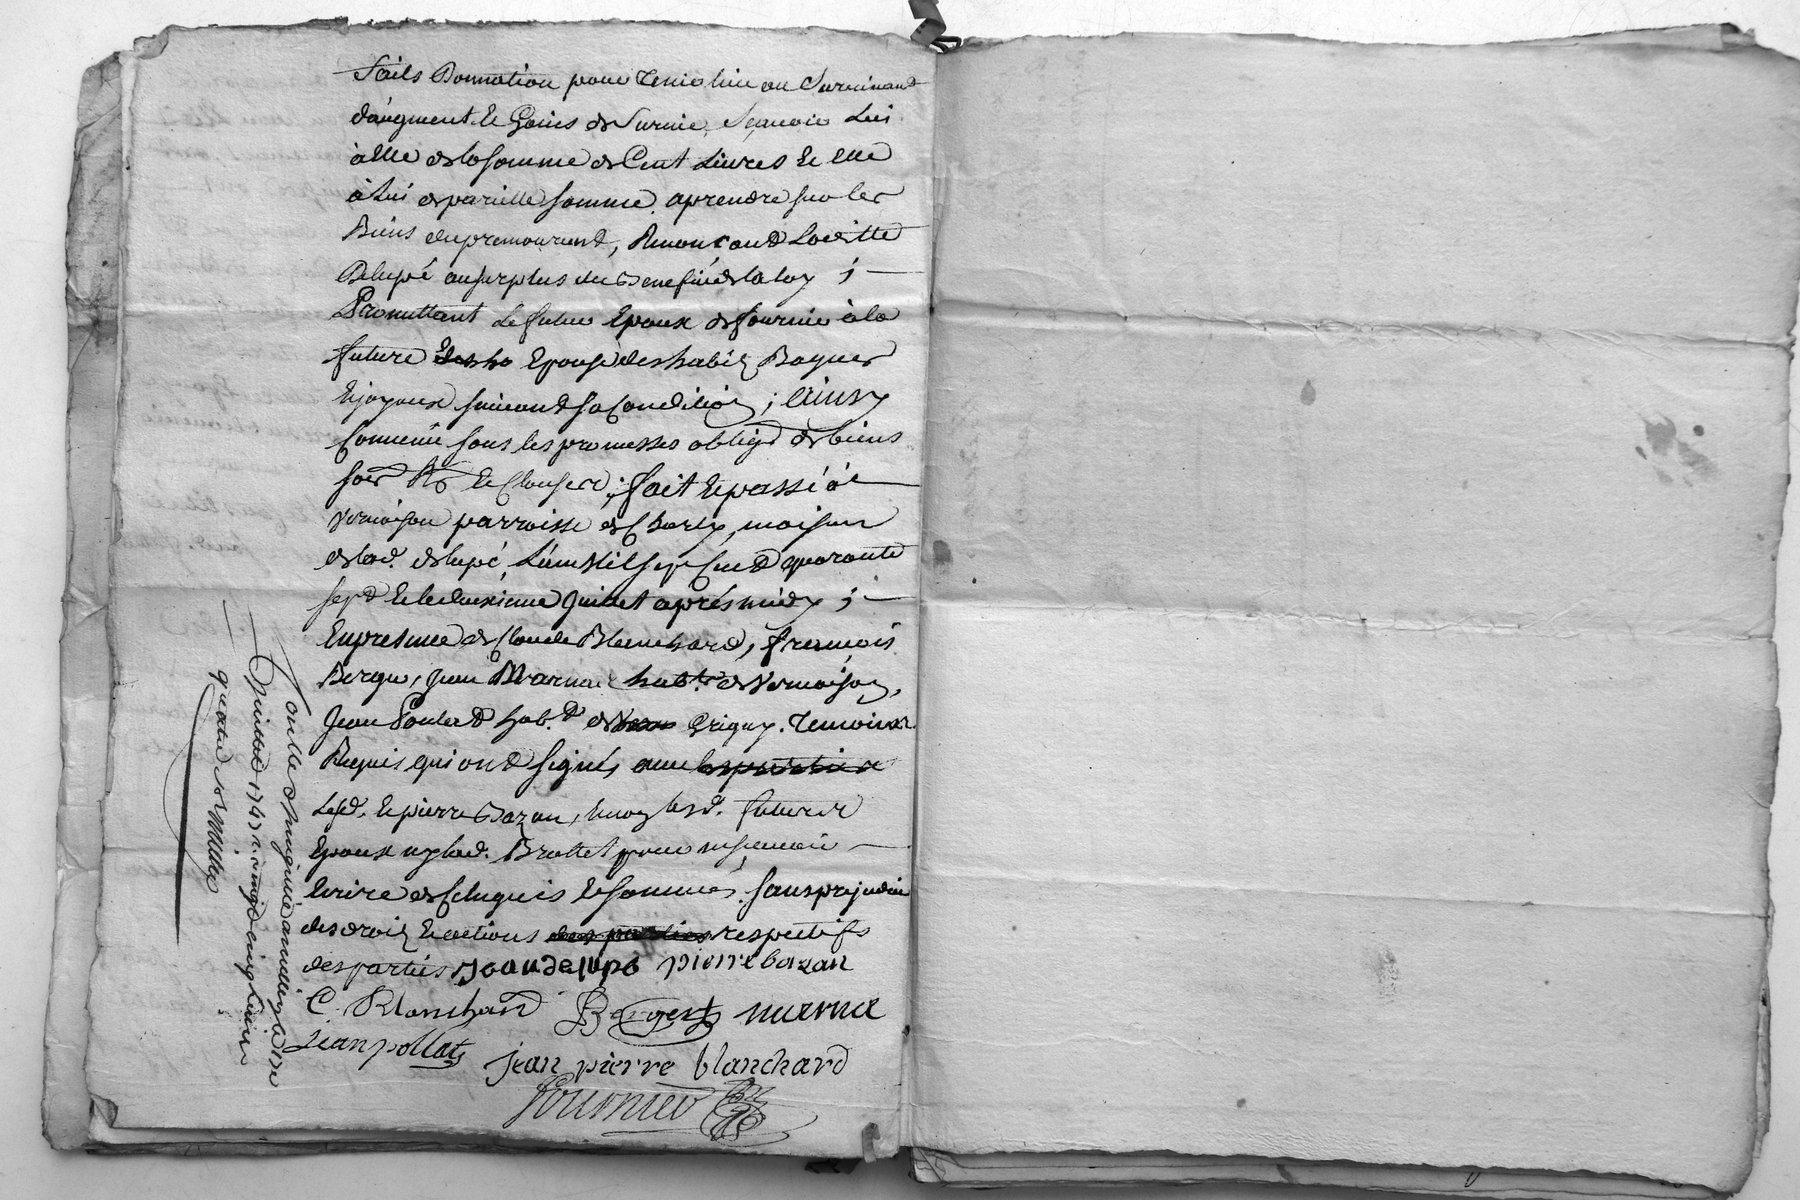 faits Donnation pour tenir lieu au Survivant
d'augment et Gains de Survie, Sçavoir Lui
à elle de la somme de Cent Livres et elle
à lui de pareille somme aprendre sur les
Biens du premourant, Renonçant Laditte
Delupé au surplus du Benefice de la loy ;
Promettant Le futur Epoux de fournir à la
future Epouse des habits Bagues
et joyaux suivant sa Condition ; Ainsy
Convenu sous les promesses obligõns de biens
soõns Rõns et Clauses ; fait et passé à
Vernaison parroisse de Charly, maison
de lad. delupé, L'an Mil sept Cent quarante
sept et le deuxieme Juillet après midy ;
En presence de Claude Blanchard, françois
Berger, Jean Marnas habts. de Vernaison,
Jean habt. de Grigny. Temoins
Requis qui ont signés avec les parties
Led. et pierre Bazan, non lesd. futurs
Epoux ny lad. Brottet pour ne sçavoir
Ecrire de Ce Enquis et sommés, sans prejudice
des droits et actions des parties respectifs
des parties Jean delupé pierre bazan
C. Blanchard Berger marnas
jean pollat
jean pierre blanchard
fournier
Controllé
Juillet 1747